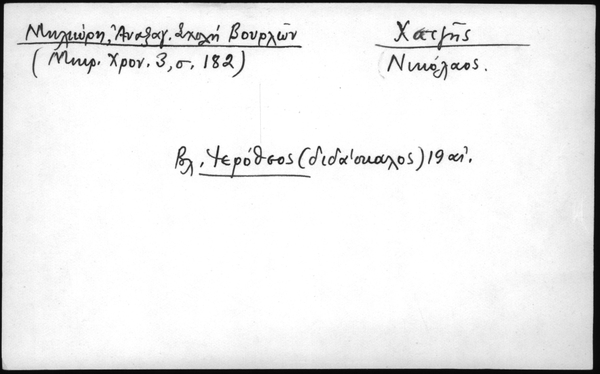 Μηλιώρη, Ἀναξαγ. Σχολή Βουρλῶν
(Μικρ. Χρον. 3, σ. 182)
Χατζῆς
Νικόλαος.
Βλ. Ἱερόθεος (διδάσκαλος) 19 αἰ.